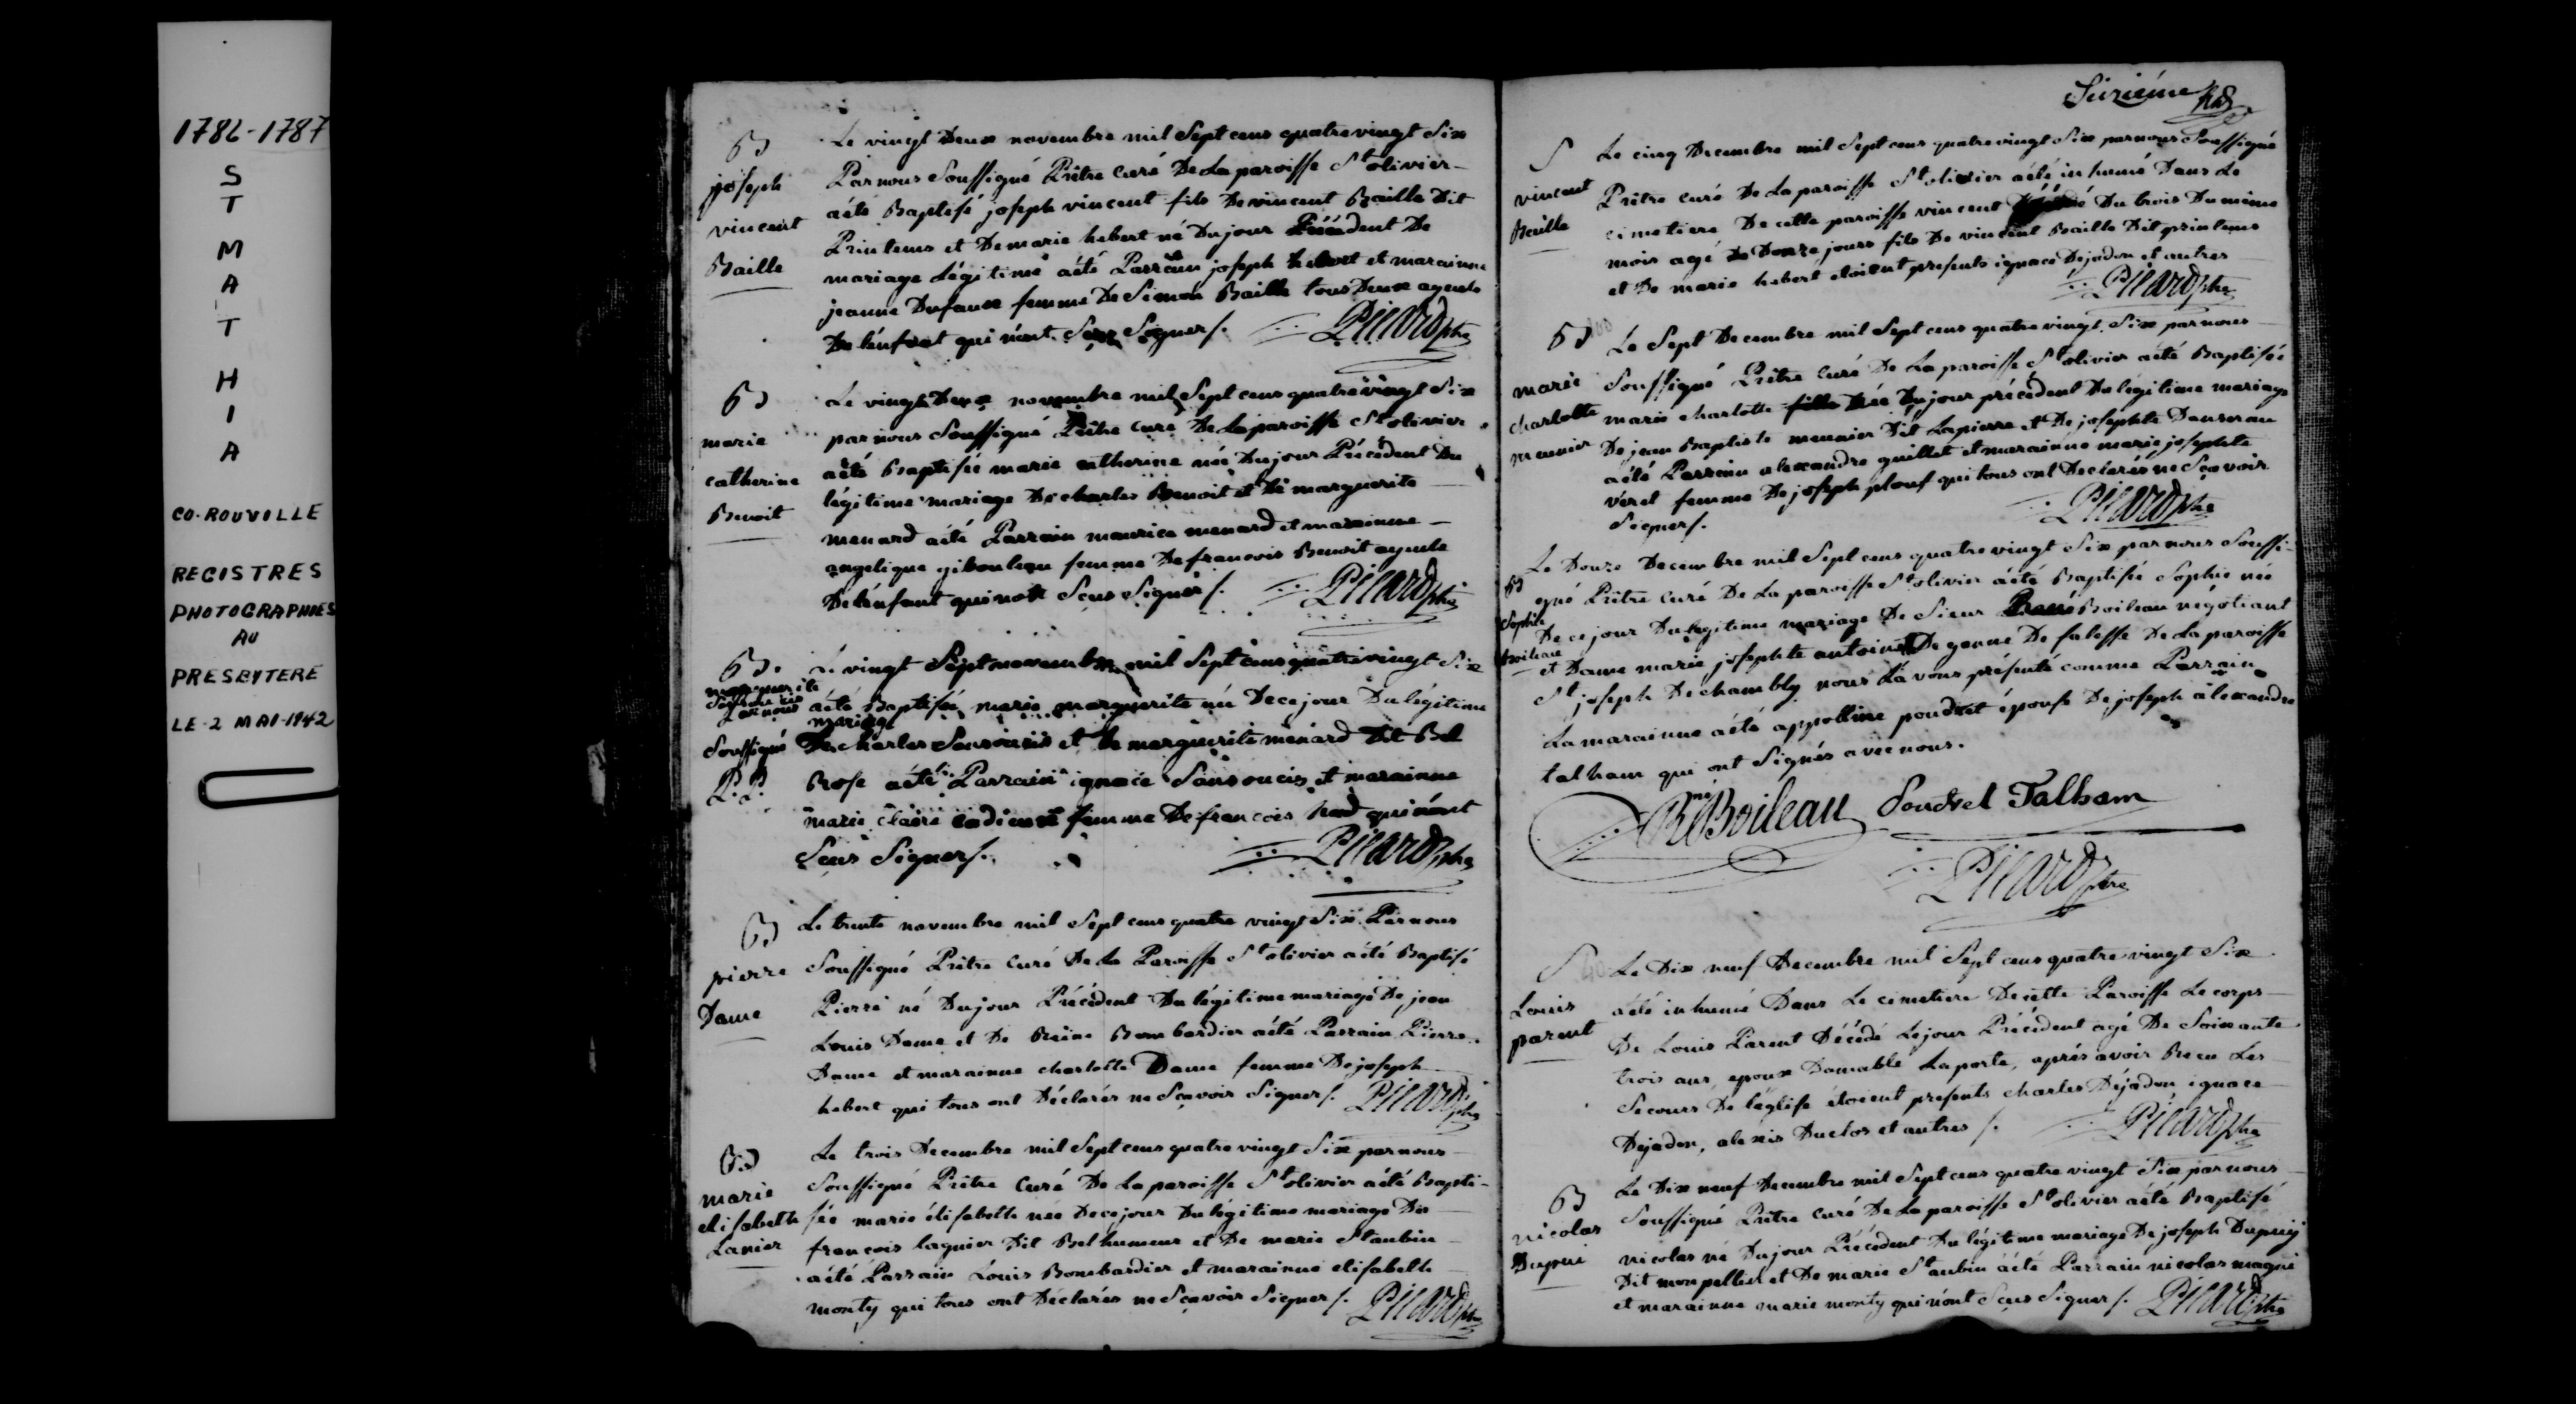 1786-1787
S
T
M
A
T
H
I
A
CO. ROUVILLE
REGISTRES
PHOTOGRAPHIES
AU
PRESBYTERE
LE 2 MAI-1942
B
joseph
vincent
Baille
Le vingt Deux novembre mil Sept cens quatrevingt Six
Par nous Soussigné Prêtre curé De La paroisse St olivier
aété Baptisé joseph vincent fils De vincent Baille Dit
Printems et De marie hebert né Du jour Précédent De
mariage Légitime aété Parrain joseph hebert et marainne
jeanne Dufaux femme De Simon Baille tous Deux ayeuls
De Lenfant qui n'ont Sçus Signer /.
Picard ptre
B
marie
catherine
Benoit
Le vingt Deux novembre mil Sept cens quatrevingt Six
par nous Soussigné Prêtre curé De La paroisse St olivier
aété Baptisée marie catherine née Du jour Précédent Du
légitime mariage De charles Benoit et De marguerite
menard aété Parrain maurice menard et marainne
angelique gibouleau femme De francois Benoit ayeule
De Lenfant qui n'ont Sçus Signer /.
Picard ptre
B.
marguerite
Sansoucis
Par nous
Soussigné
P.P.
Le vingt Sept novembre mil Sept cens quatrevingt Six
aété Baptisée marie marguerite née De ce jour Du légitime
mariage
De charles Sansoucis et De marguerite ménard Dit Bel
Rose aété Parrain ignace Sansoucis et marainne
marie Claire cadieux femme De francois Rod qui n'ont
Sçus Signer /.
Picard ptre
B
pierre
Dame
Le trente novembre mil Sept cens quatre vingt Six Par nous
Soussigné Prêtre curé De La Paroisse St olivier aété Baptisé
Pierre né Du jour Précédent Du légitime mariage De jean
Louis Dame et De Reine Bombardier aété Parrain Pierre
Dame et marainne charlotte Dame femme De joseph
hebert qui tous ont Déclarés ne Sçavoir Signer /.
Picard ptre
B
marie
elisabeth
Lanier
Le trois Decembre mil Sept cens quatre vingt Six par nous
Soussigné Prêtre Curé De La paroisse St olivier aété Bapti-
sée marie élisabeth née De ce jour Du légitime mariage De
francois laguier Dit Belhumeur et De marie St aubin
aété Parrain Louis Bombardier et marainne elisabeth
monty qui tous ont Déclarés ne Sçavoir Signer /.
Picard ptre
Sixième
S
vincent
Baille
Le cinq Decembre mil Sept cens quatrevingt Six par nous Soussigné
Prêtre curé De La paroisse St olivier aété inhumé Dans Le
cimetiere De cette paroisse vincent Décédé Du trois Du même
mois agé De Douze jours fils De vincent Baille Dit printems
et De marie hebert étoient presents ignace Dejadon et autres
Picard ptre
B
marie
charlotte
meunier
Le Sept Decembre mil Sept cens quatre vingt Six par nous
Soussigné Prêtre curé De La paroisse St olivier aété Baptisée
marie charlotte fille née Du jour précédent Du légitime mariage
De jean Baptiste meunier Dit Lapierre et De josephte Dansereau
aété Parrain alexandre guillet et marainne marie josephte
veret femme De joseph plouf qui tous ont Declarés ne Sçavoir
Signer /.
Picard ptre
B
Sophie
Boileau
Le Douze Decembre mil Sept cens quatre vingt Six par nous Soussi-
gné Prêtre curé De La paroisse St olivier aété Baptisée Sophie née
De ce jour Du légitime mariage De Sieur René Boileau négotiant
et Dame marie josephte antoinette De ganne De falesse De La paroisse
St joseph De chambly nous La vons présenté comme Parrain
La marainne aété appolline poudret épouse De joseph alexandre
talham qui ont Signés avec nous.
Rné Boileau Poudret Talham
Picard ptre
S
Louis
parent
Le Dix neuf Decembre mil Sept cens quatre vingt Six
aété inhumé Dans Le cimetiere De cette Paroisse Le corps
De Louis Parent Décédé Le jour Précédent agé De Soixante
trois ans, epoux Damable Laporte, après avoir Recu Les
Secours De l'église étoient présents charles Déjadon ignace
Dejadon, alexis Duclos et autres /.
Picard ptre
B
nicolas
Dupui
Le Dix neuf Decembre mil Sept cens quatre vingt Six par nous
Soussigné Prêtre curé De La paroisse St olivier aété Baptisé
nicolas né Du jour Précédent Du légitime mariage De joseph Dupuy
Dit monpellier et De marie St aubin aété Parrain nicolas magni
et marainne marie monty qui n'ont Sçus Signer /.
Picard ptre